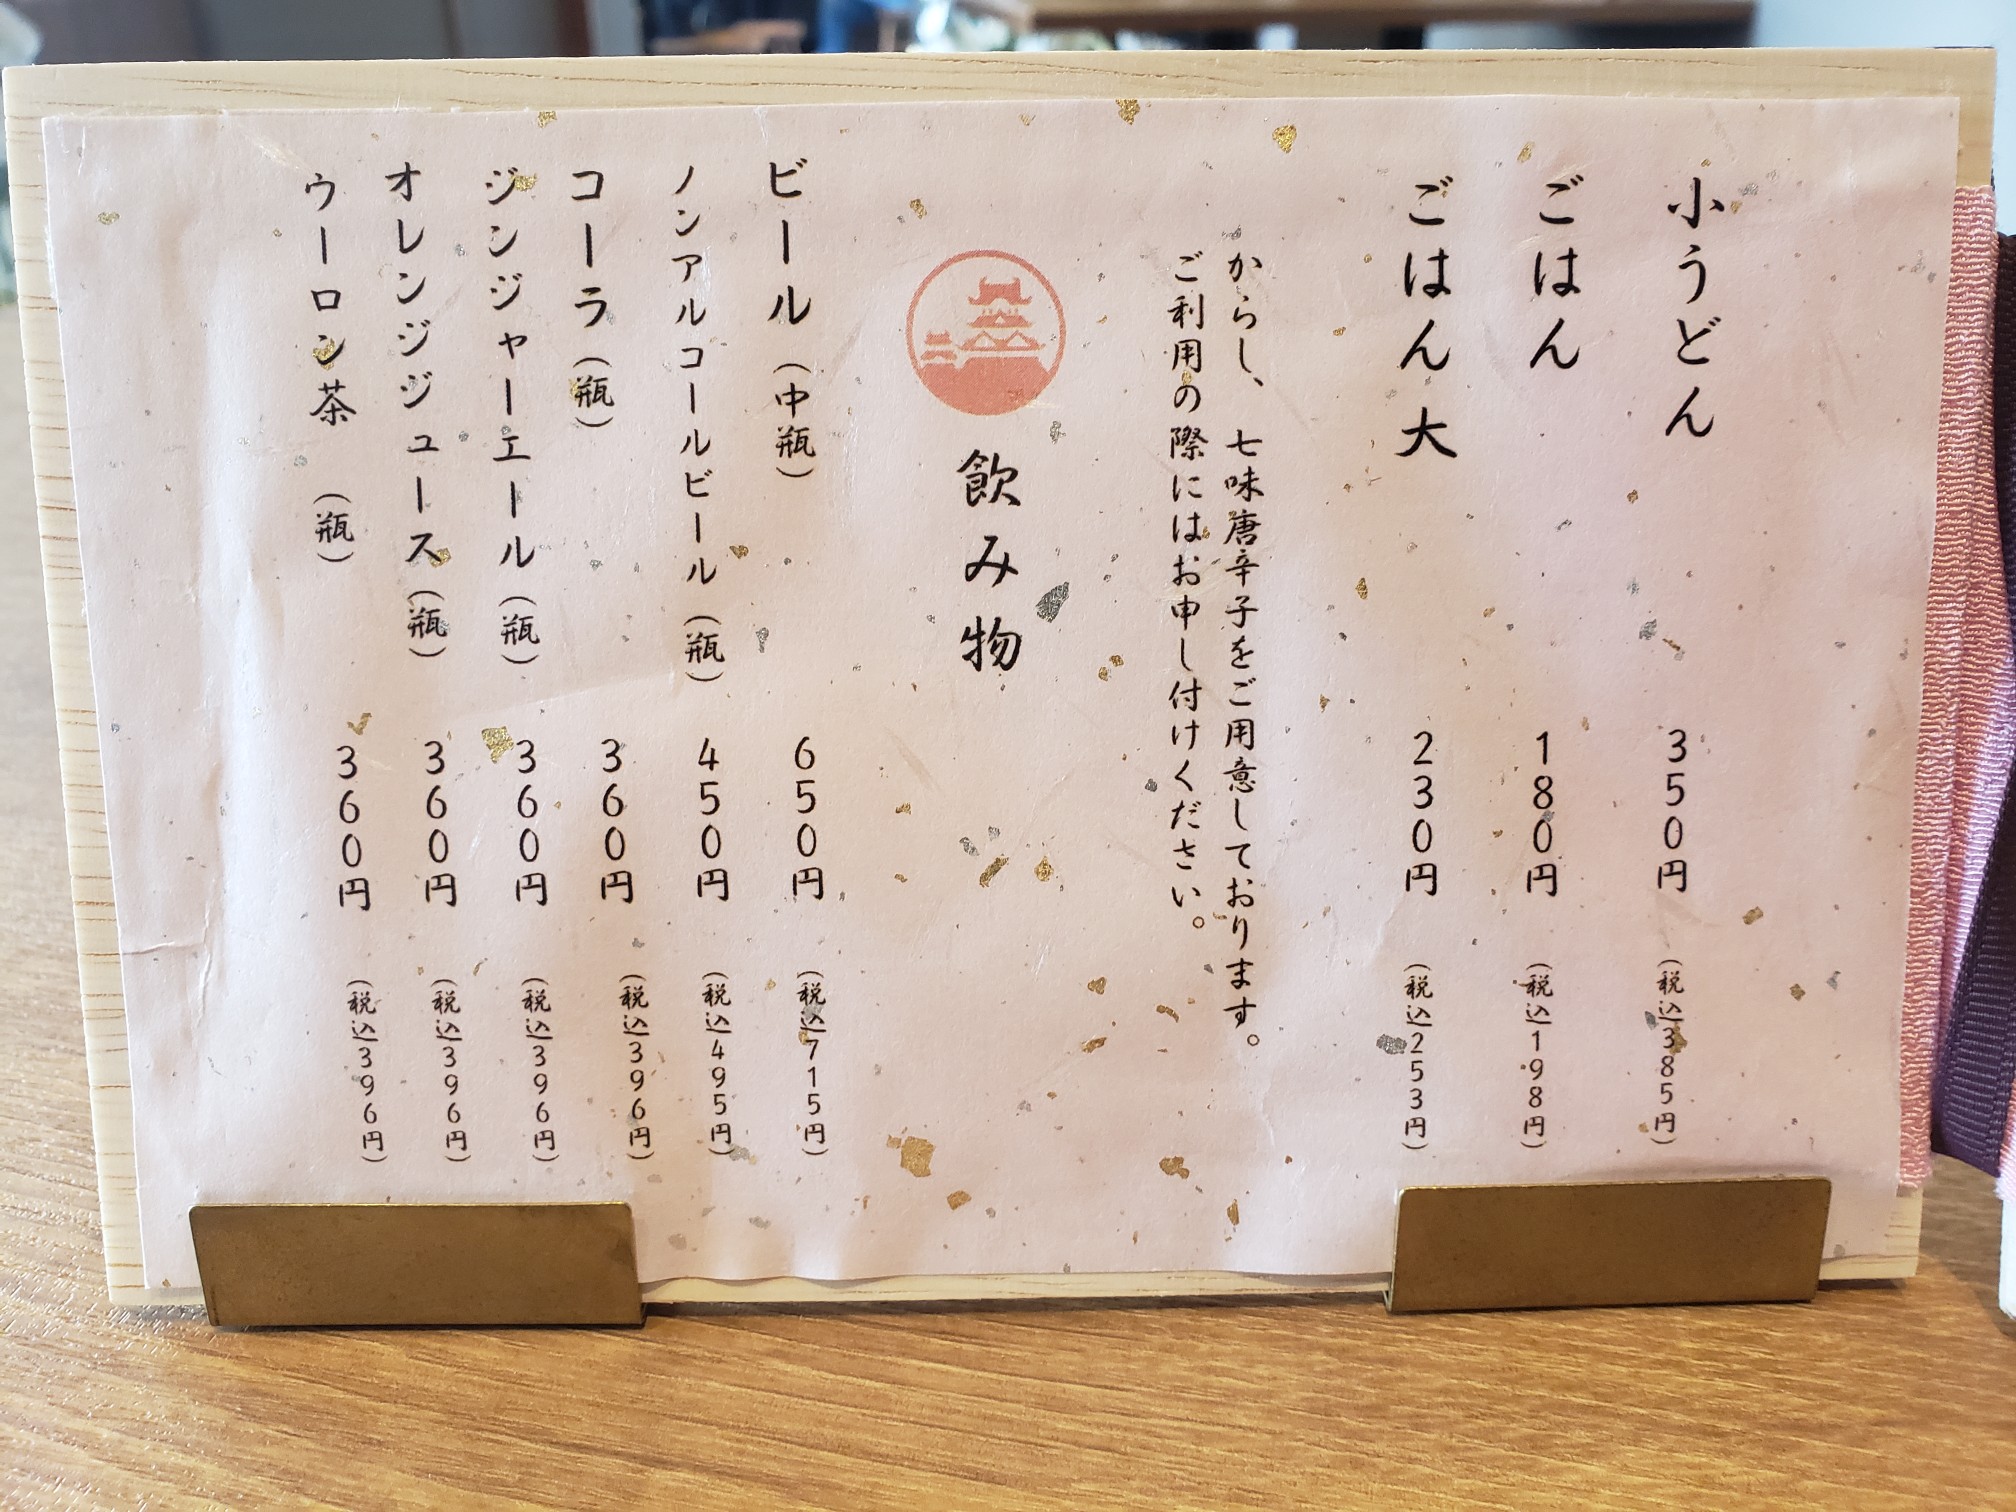 小うどん 350円 （税込385円）
ごはん 180円 （税込198円）
ごはん大 230円 （税込253円）
からし、七味唐辛子をご用意しております。
ご利用の際にはお申し付けください。
飲み物
ビール（中瓶） 650円 （税込715円）
ノンアルコールビール（瓶） 450円 （税込495円）
コーラ（瓶） 360円 （税込396円）
ジンジャーエール（瓶） 360円 （税込396円）
オレンジジュース（瓶） 360円 （税込396円）
ウーロン茶（瓶） 360円 （税込396円）